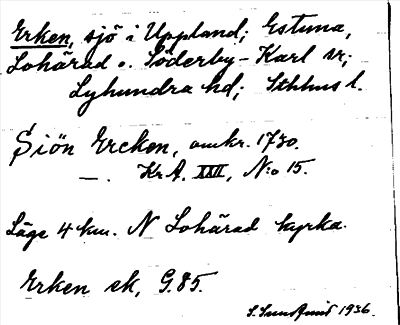 Erken, sjö i Uppland; Estuna,
Lohärad o. Söderby-Karl sr;
Lyhundra hd; Sthlms l.
Siön Ercken, omkr. 1730.
—. KrA. XXII, N:o 15.
Läge 4 km. N Lohärad kyrka.
Erken ek, G.85.
S. Sundquist 1936.